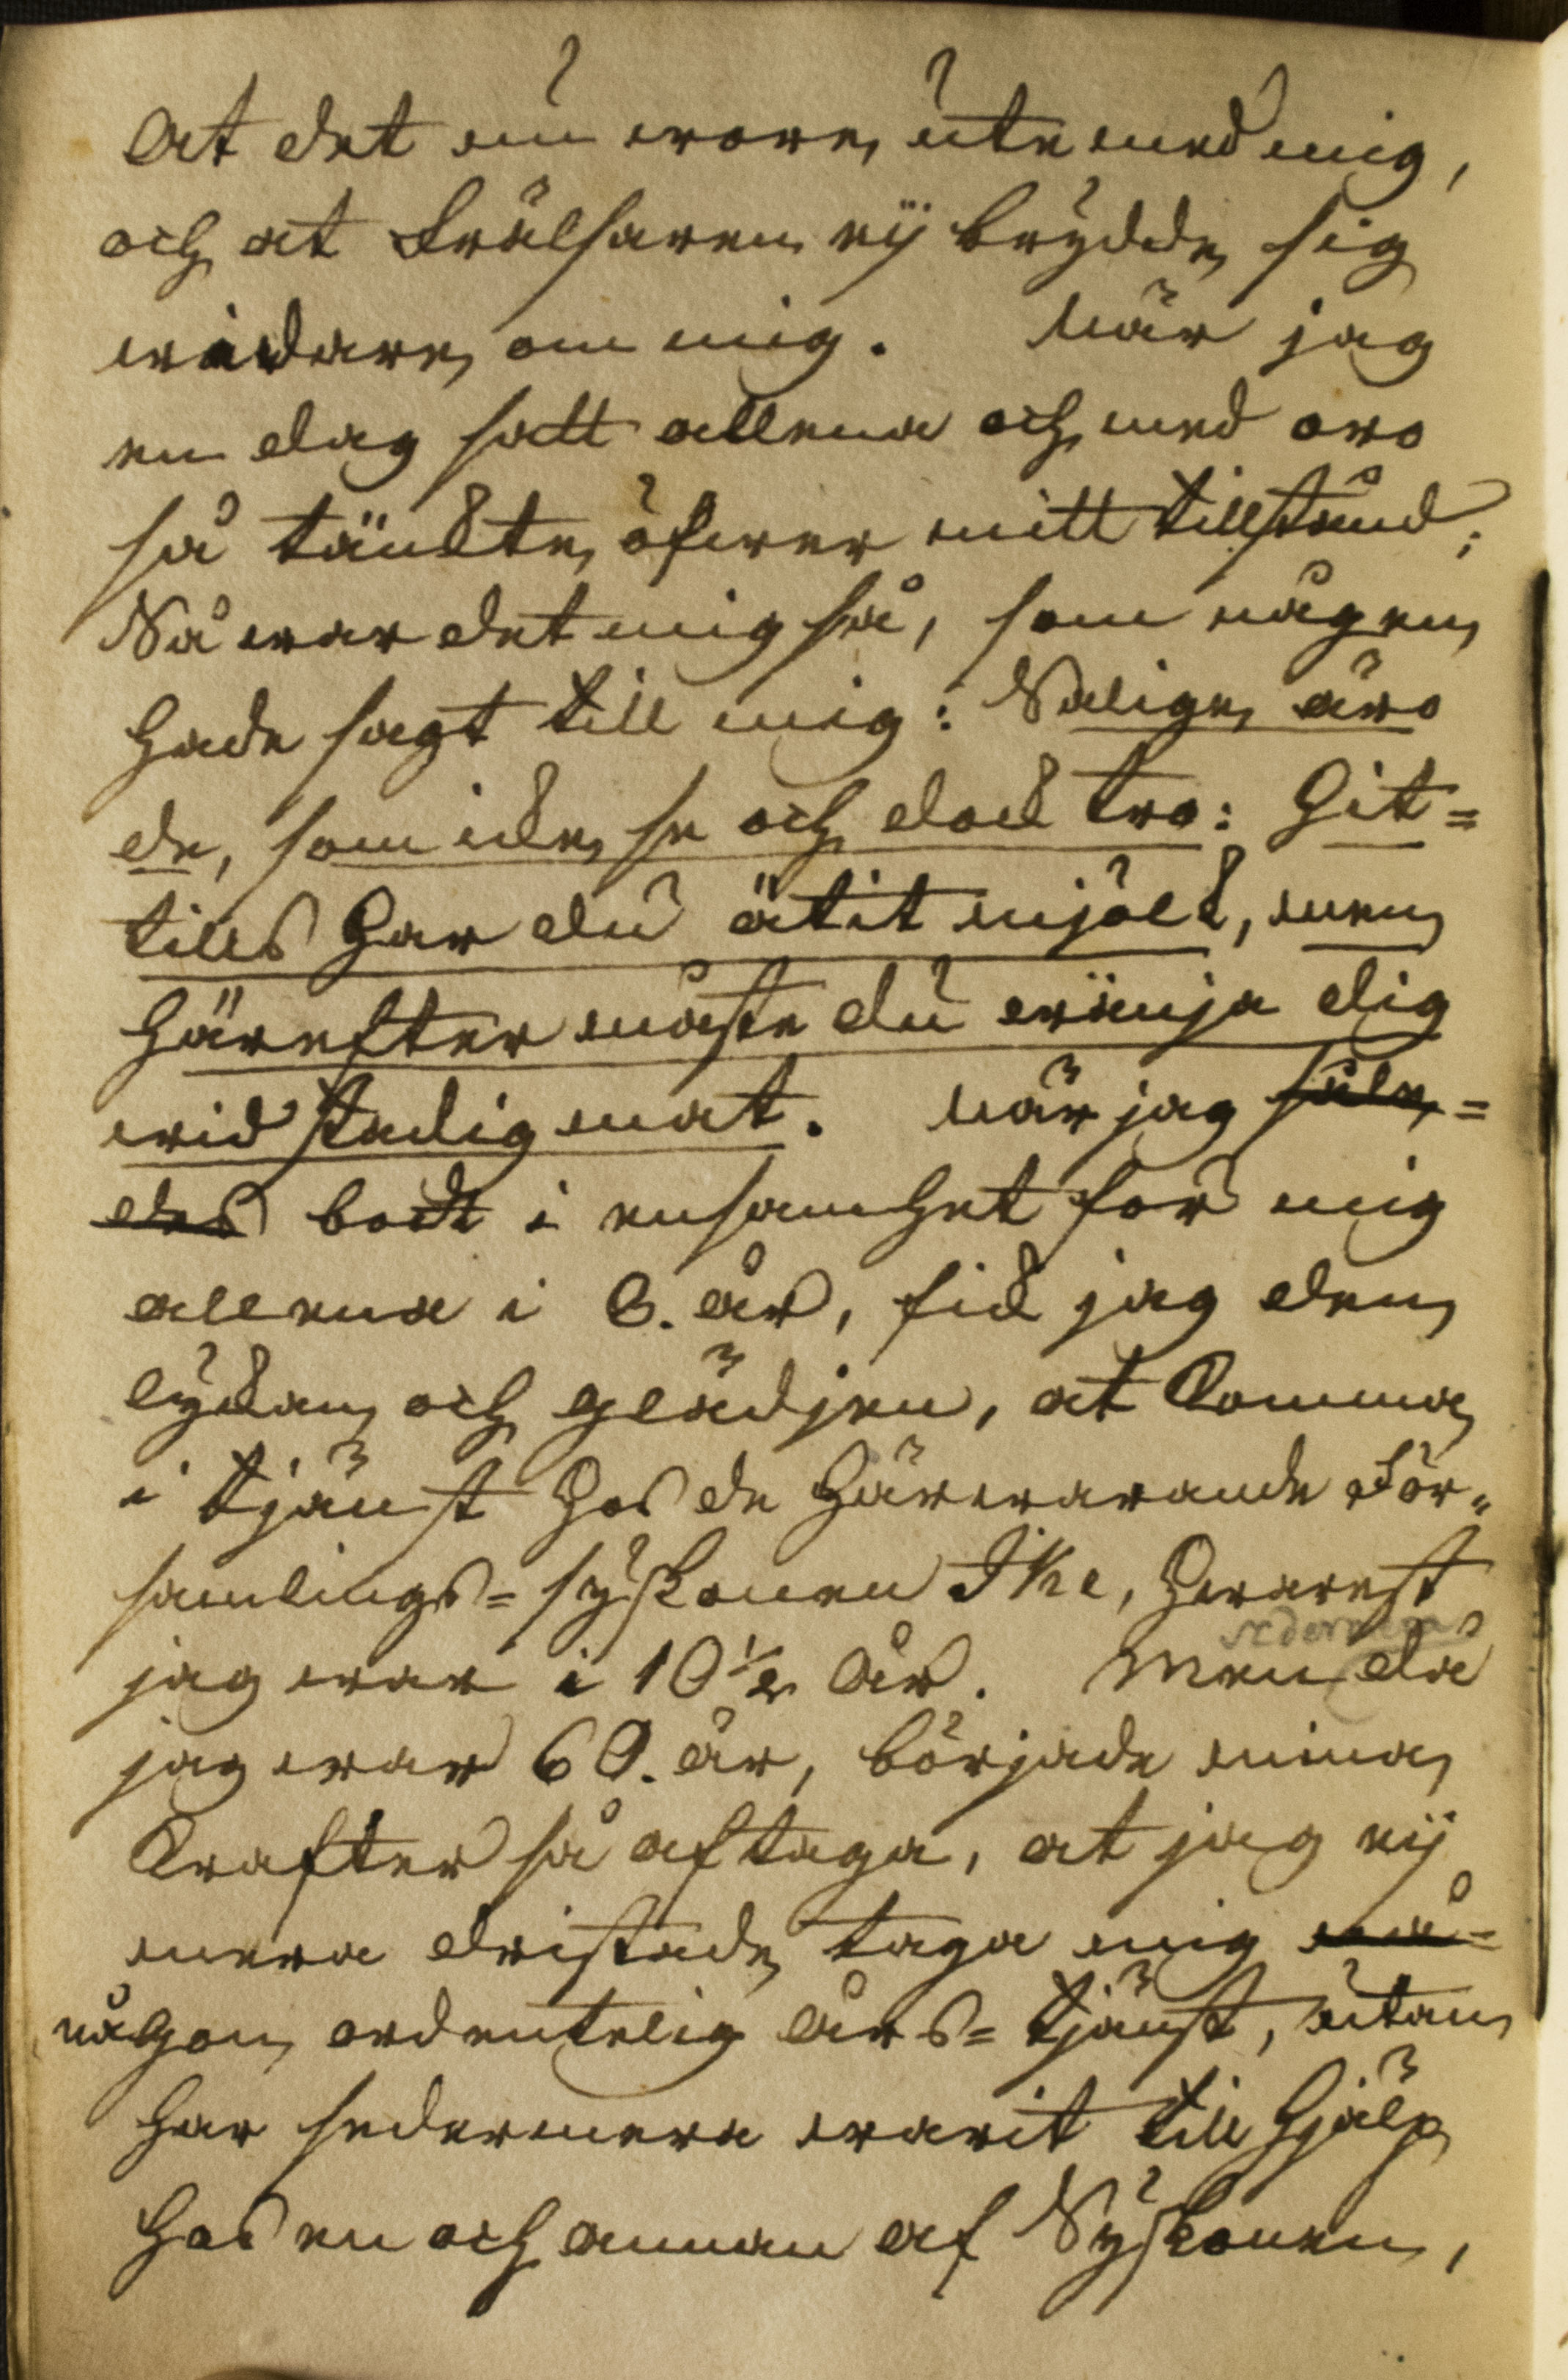 at det nu wore ute med mig,
och at Frälsaren ej brydde sig
widare om mig. När jag
en dag satt allena och med oro
så tänkte öfwer mitt tillstånd;
Så war det mig så, som någen
hade sagt till mig: Salige äro
de, som icke se och dock tro: Hit=
tills har du ätit mjölk, men
härefter måste du wänja dig
wid stadig mat. När jag såle=
des bodt i ensamhet for mig
allena i 8. år, fick jag den
lyckan och glädjen, at komma
i tjänst hos de härwarande För=
samlings=syskonen Ihre, hwarest
jag war i 10 1/2 år. Men då
sedermera
jag war 60. år, började mina
krafter så aftaga, at jag ej
mera dristade taga mig nå=
någon ordentelig års=tjänst, utan
har sedermera warit till hjälp
hos en och annan af Syskonen,